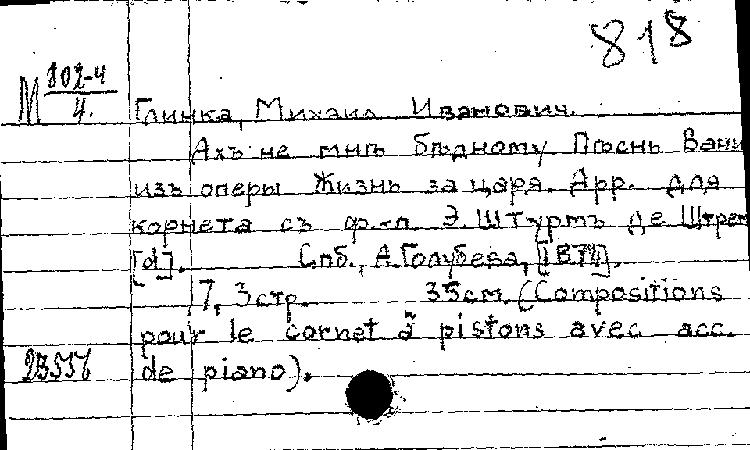 818
М 802-4
4.
Глинка, Михаил Иванович.
Ахъ не мнѣ бѣдному Пѣснь Вани
изъ оперы Жизнь за царя. Арр. для
корнета съ ф.-п. Э. Штуртъ де Штрем
[d]. Спб., А. Голубева, [1874].
7, 3 стр. 35 см. (Compositions
pour le cornet à pistons avec acc.
de piano).